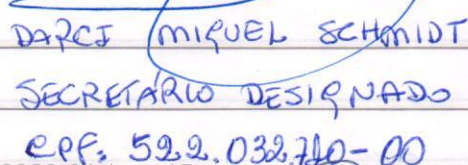 DARCI MIGUEL SCHMIDT
SECRETÁRIO DESIGNADO
CPF: 522.032.710-00